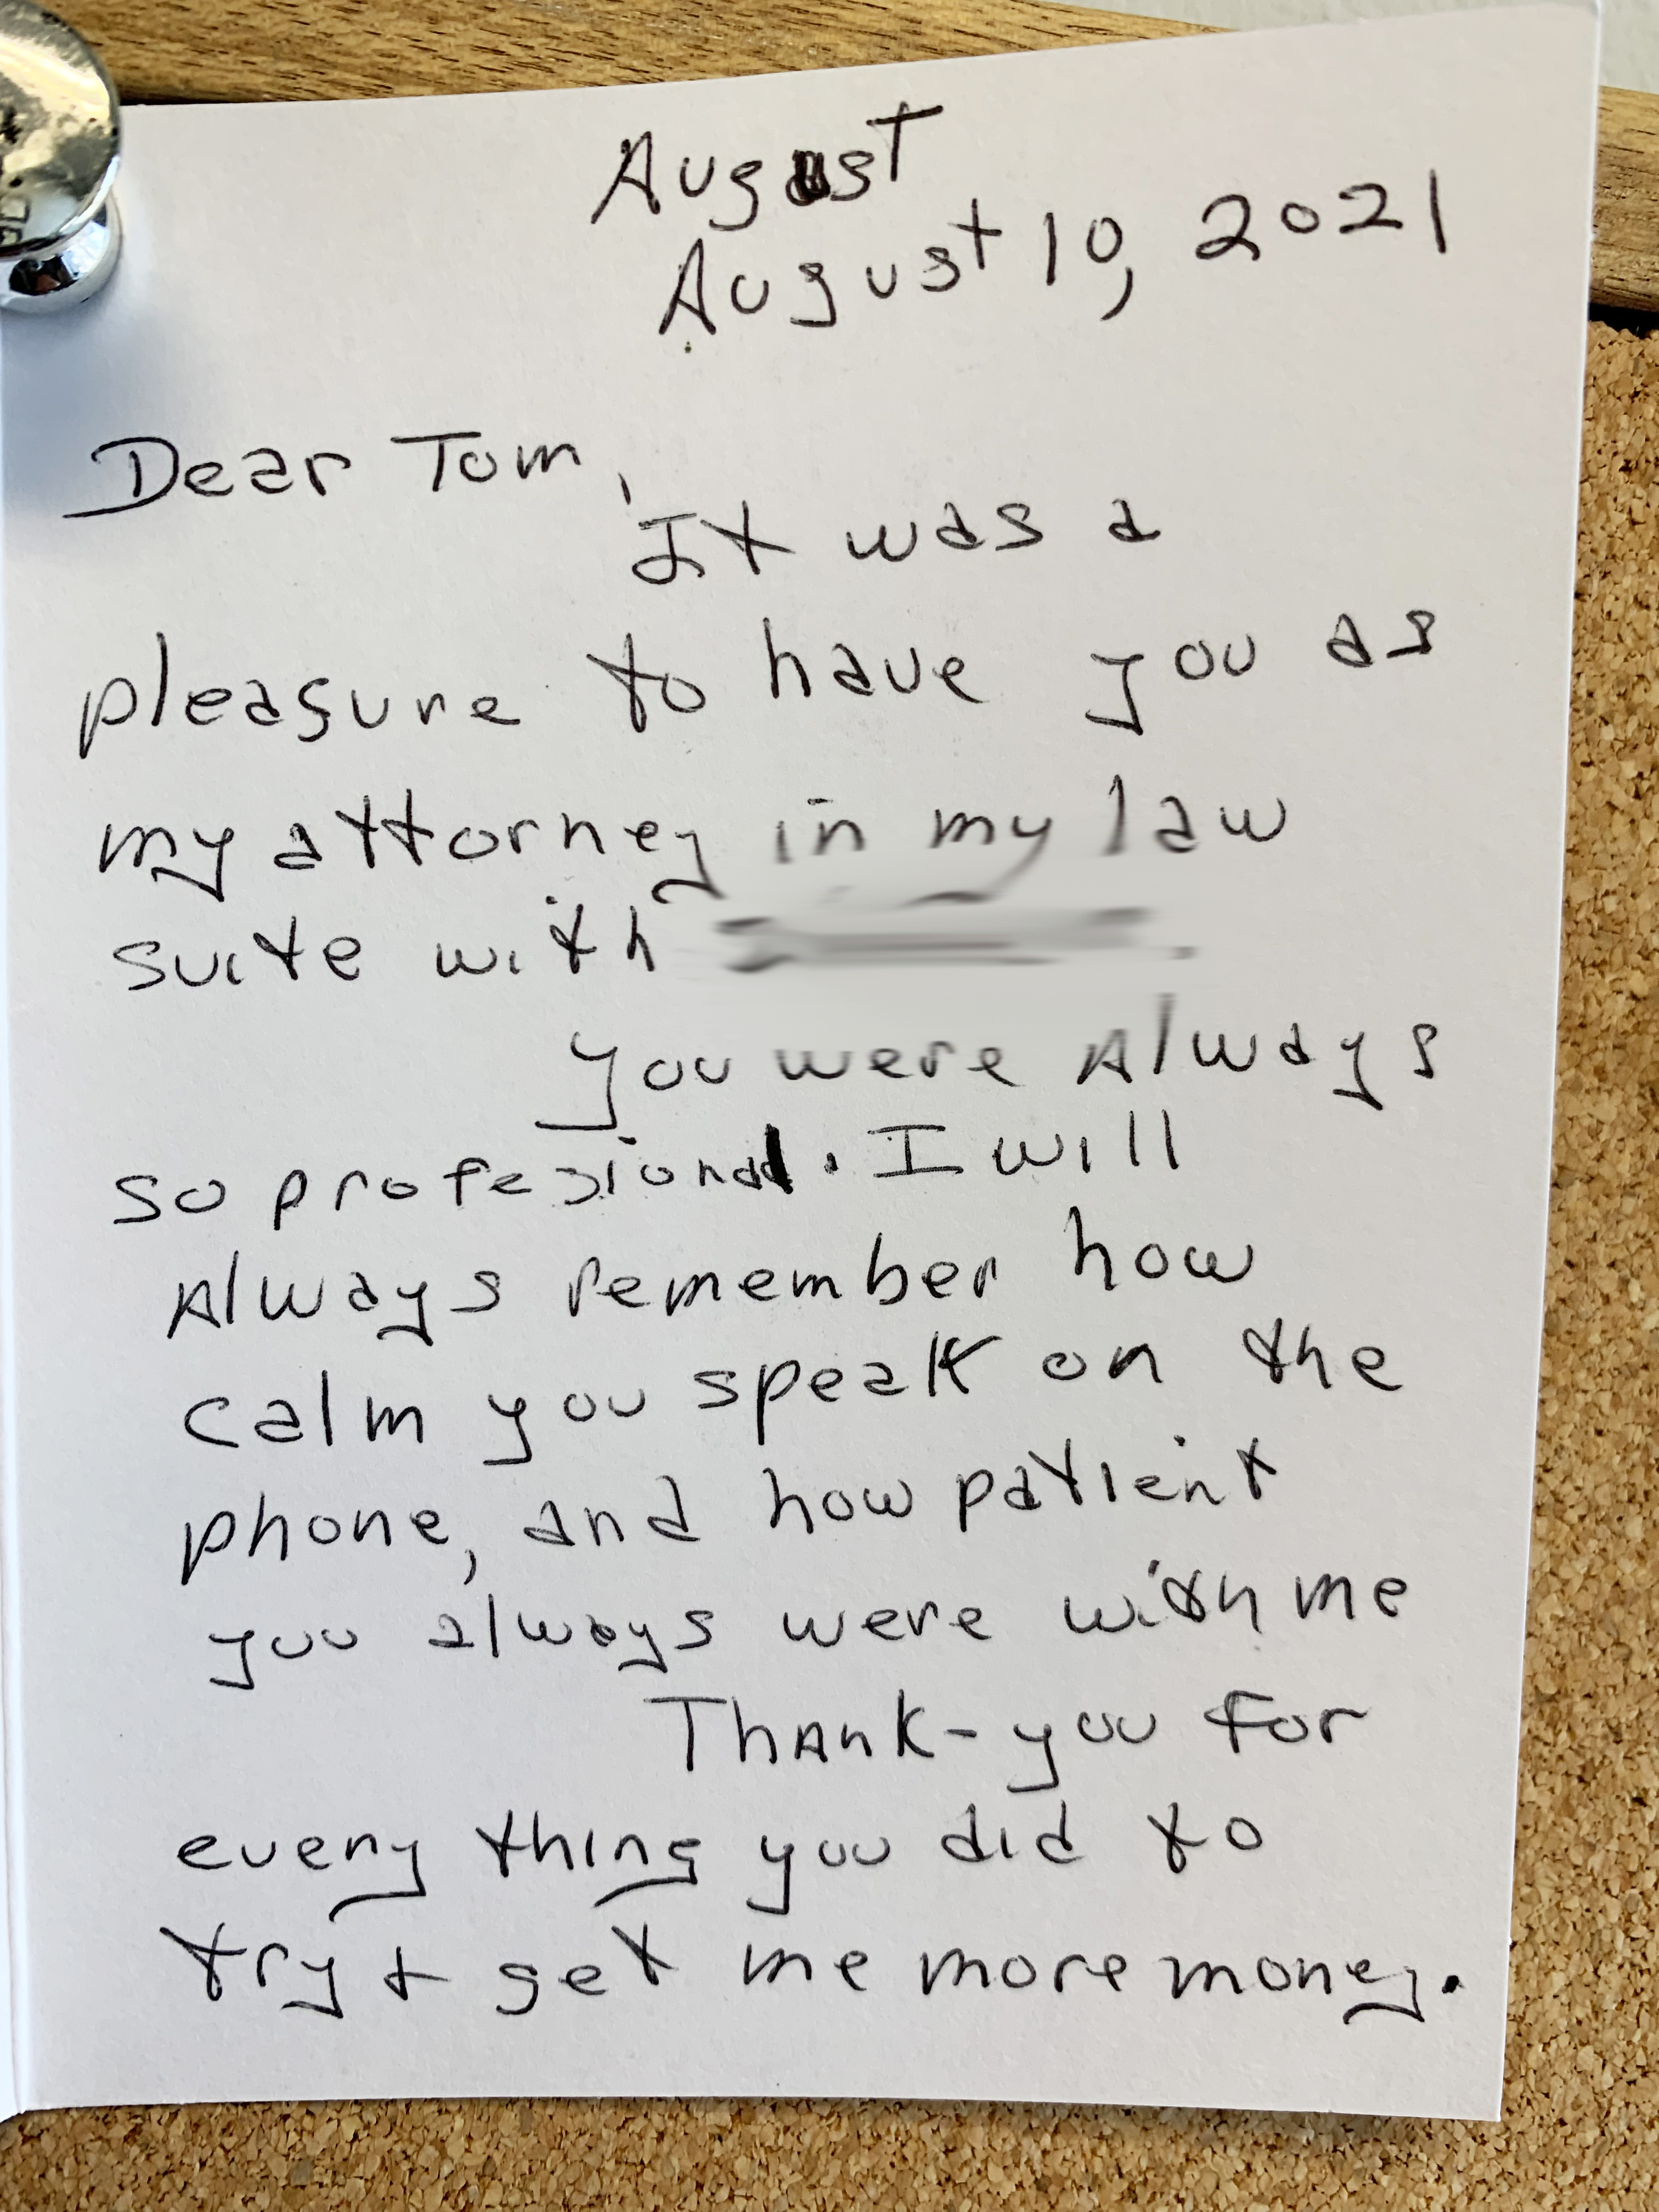 August
August 10, 2021
Dear Tom,
It was a
pleasure to have you as
my attorney in my law
suite with
you were Always
so profesional. I will
Always remember how
calm you speak on the
phone, and how patient
you always were with me
Thank-you for
every thing you did to
try + get me more money.